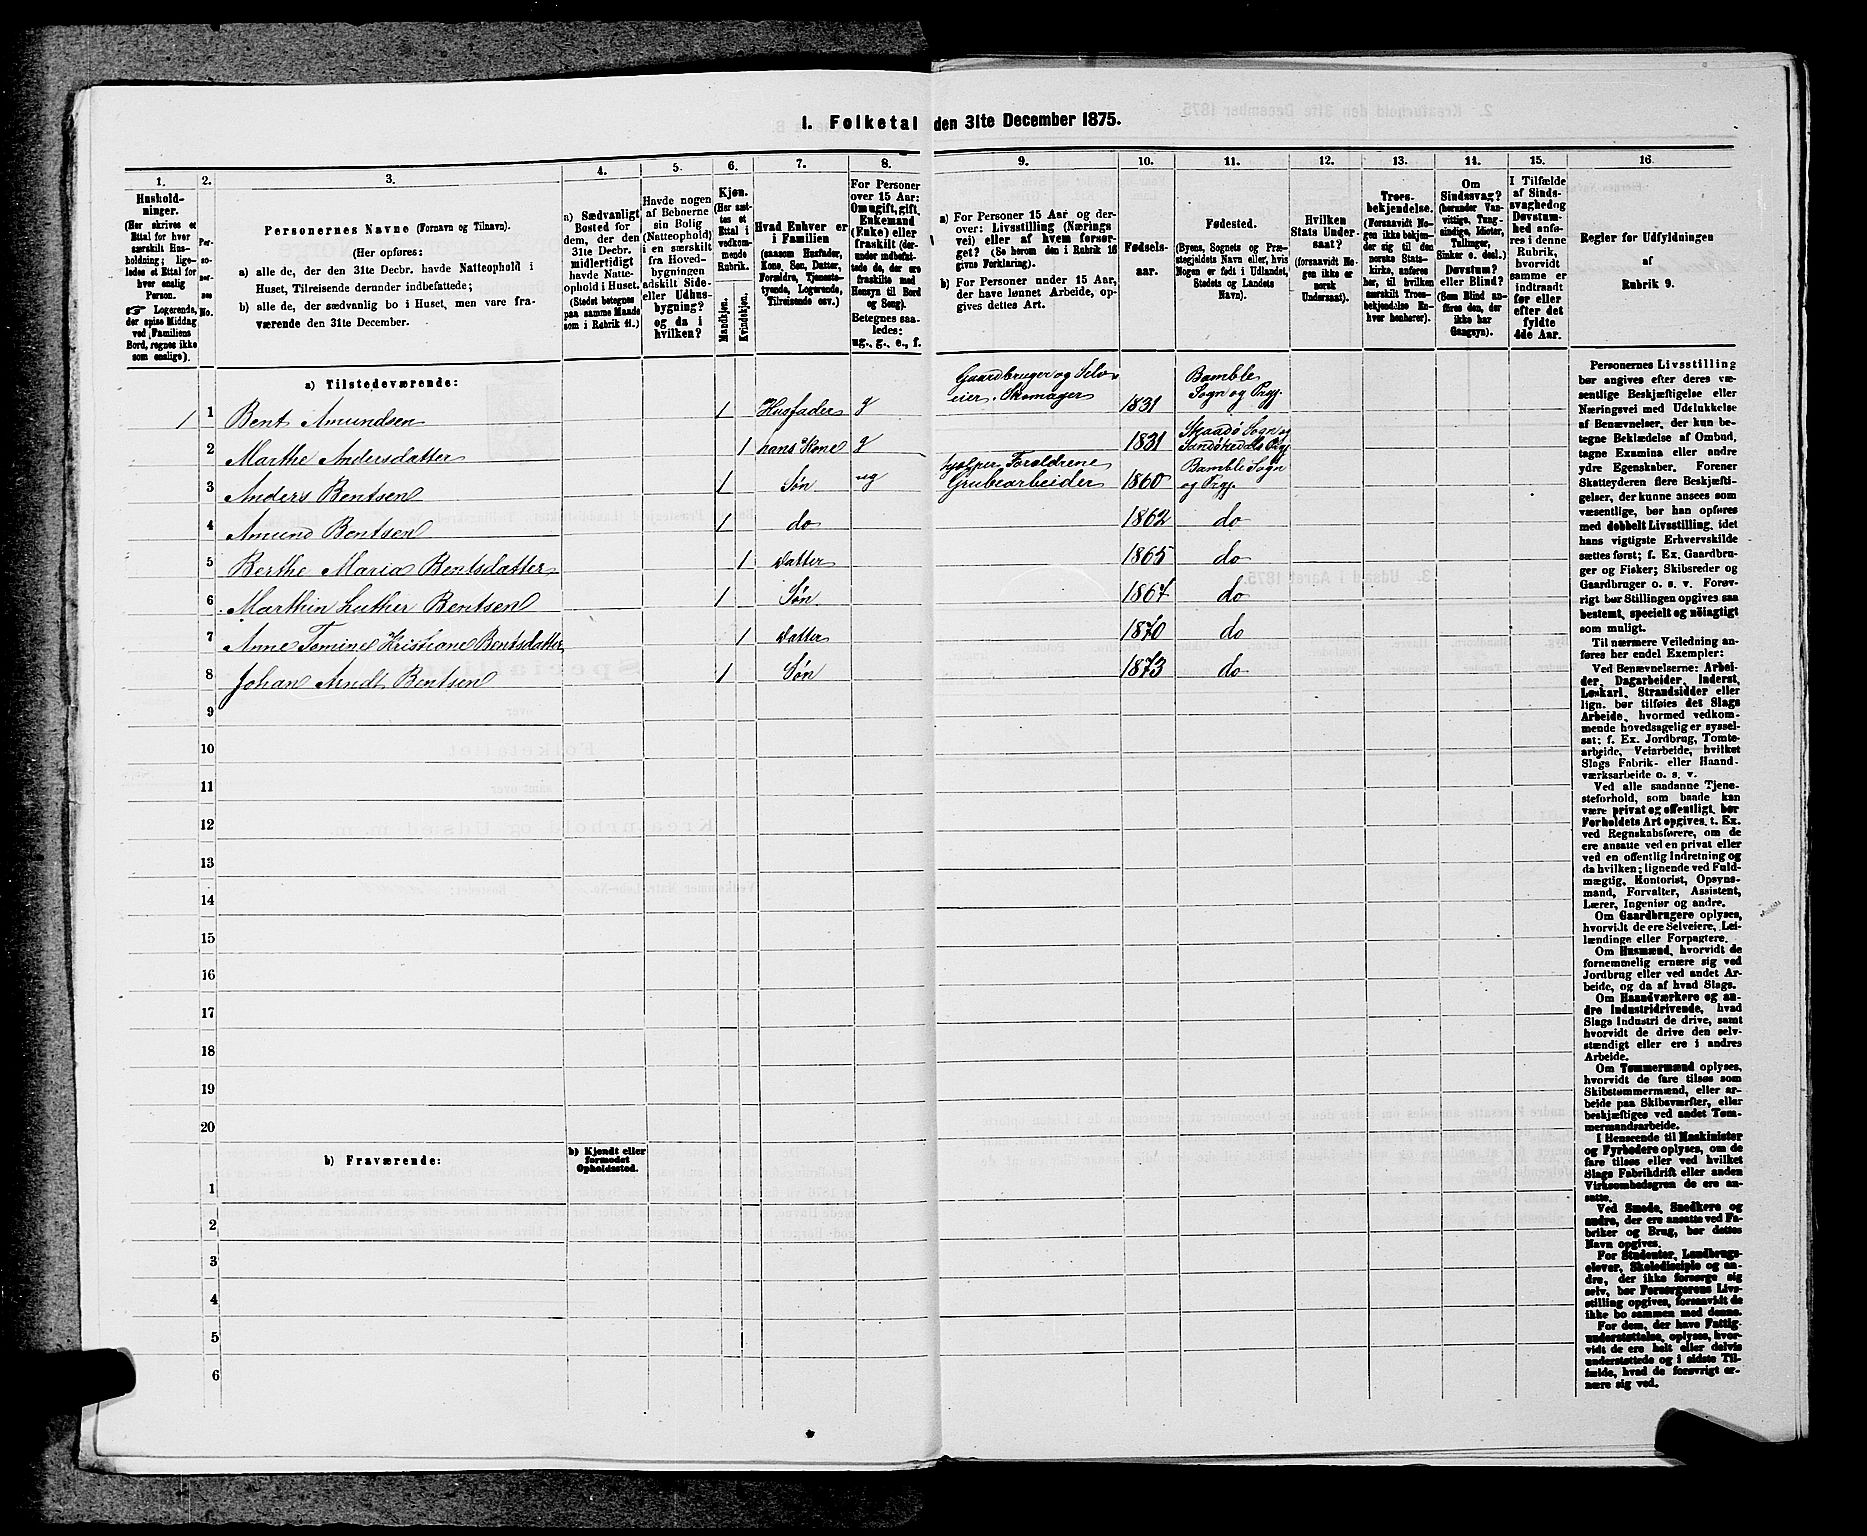 1. Folketal den 31te December 1875.
1.
2.
3.
4.
5.
6.
7.
8.
9.
10.
11.
12.
13.
14.
15.
16.
Hushold-
ninger.
(Her skrives et
Ettal for hver
særskilt Hus-
holdning; lige-
ledes et Ettal for
hver enslig
Person.
☞ Logerende,
der spise Middag
ved Familiens
Bord, regnes ikke
som enslige).
Per-
so-
ner-
nes
No.
Personernes Navne (Fornavn og Tilnavn).
(Her opføres:
a) alle de, der den 31te Decbr. havde Natteophold i
Huset, Tilreisende derunder indbefattede;
b) alle de, der sædvanlig bo i Huset, men vare fra-
værende den 31te December.
a) Sædvanligt
Bosted for
dem, der den
31te Decbr.
midlertidigt
havde Natte-
ophold i Huset.
(Stedet betegnes
paa samme Maade
som i Rubrik 11.)
Havde nogen
af Beboerne
sin Bolig
(Natteophold)
i en særskilt
fra Hoved-
bygningen
adskilt Side-
eller Udhus-
bygning?
og da i
hvilken?
Kjøn.
(Her sæt-
tes et
Ettal i
vedkom-
mende
Rubrik.
Mandkjøn.
Kvindekjøn.
Hvad Enhver er
i Familien
(saasom Husfader,
Kone, Søn, Datter,
Forældre, Tjeneste-
tyende, Logerende,
Tilreisende osv.)
For Personer
over 15 Aar:
Om ugift, gift,
Enkemand
(Enke) eller
fraskilt (der-
under indbefat-
tede de, der ere
fraskilte med
Hensyn til Bord
og Seng).
Betegnes saa-
ledes:
ug., g., e., f.
a) For Personer 15 Aar og der-
over: Livsstilling (Nærings
vei) eller af hvem forsør-
get? (Se herom den i Rubrik 16
givne Forklaring).
b) For Personer under 15 Aar,
der have lønnet Arbeide, op-
gives dettes Art.
Fødsels-
aar.
Fødested.
(Byens, Sognets og Præ-
stegjeldets Navn eller, hvis
Nogen er født i Udlandet,
Stedets og Landets
Navn).
Hvilken
Stats Under-
saat?
(forsaavidt No-
gen ikke er
norsk
Undersaat).
Troes-
bekjendelse.
(Forsaavidt No-
gen ikke bekjen-
der sig til den
norske Stats-
kirke, anføres
her, til hvilken
særskilt Troes-
bekjendelse En-
hver henhører).
Om
Sindssvag?
(herunder Van-
vittige, Tung-
sindige, Idioter,
Tullinger,
Sinker o. desl.)
Døvstum?
eller Blind?
(Som Blind an-
føres den, der
ikke har
Gangsyn).
I Tilfælde
af Sinds-
svaghed og
Døvstum-
hed anfø-
res i denne
Rubrik,
hvorvidt
samme er
indtraadt
før eller
efter det
fyldte
4de Aar.
Regler for Udfyldningen
af
Rubrik 9.
a) Tilstedeværende:
1 1 Bent Amundsen 1 Husfader g Gaardbruger og Selv-
eier. Skomager 1831 Bamble
Sogn og Prgj.
2 Marthe Andersdatter 1 hans Kone g 1831 Skaadø Sogn og
Sandøkedals Prgj
3 Anders Bentsen 1 Søn ug hjælper Forældrene
Grubearbeider 1860 Bamble Sogn
og Prgj.
4 Amund Bentsen 1 do 1862 do
5 Berthe Maria Bentsdatter 1 Datter 1865 do
6 Marthin Luther Bentsen 1 Søn 1867 do
7 Anne Tomine Kristione Bentsdatter 1 Datter 1870 do
8 Johan Arndt Bentsen 1 Søn 1873 do
9
10
11
12
13
14
15
16
17
18
19
20
b) Fraværende:
b) Kjendt eller
formodet
Opholdssted.
1
2
3
4
5
6
Personernes Livsstilling
bør angives efter deres væ-
sentlige Beskjæftigelse eller
Næringsvei med Udelukkelse
af Benævnelser, der kun be-
tegne Beklædelse af Ombud,
tagne Examina eller andre
ydre Egenskaber. Forener
Skatteyderen flere Beskjæfti-
gelser, der kunne ansees som
væsentlige, bør han opføres
med dobbelt Livsstilling, idet
hans vigtigste Erhvervskilde
sættes først; f. Ex. Gaardbru-
ger og Fisker; Skibsreder og
Gaardbruger o. s. v. Forøv-
rigt bør Stillingen opgives saa
bestemt, specielt og nøiagtigt
som muligt.
Til nærmere Veiledning an-
føres her endel Exempler:
Ved Benævnelserne: Arbei-
der, Dagarbeider, Inderst,
Løskarl, Strandsidder eller
lign. bør tilføies det Slags
Arbeide, hvormed vedkom-
mende hovedsagelig er syssel-
sat; f. Ex. Jordbrug, Tomte-
arbejde, Veiarbeide, hvilket
Slags Fabrik- eller Haand-
værksarbeide o. s. v.
Ved alle saadanne Tjene-
steforhold, som baade kan
være privat og offentligt, bør
Forholdets Art opgives, t. Ex.
ved Regnskabsførere, om de
ere ansatte ved en privat eller
ved en offentlig Indretning og
da hvilken; lignende ved Fuld-
mægtig, Kontorist, Opsyns-
mand, Forvalter, Assistent,
Lærer, Ingeniør og andre.
Om Gaardbrugere oplyses,
hvorvidt de ere Selveiere, Lei-
lændinge eller Forpagtere.
Om Husmænd, hvorvidt de
fornemmelig ernære sig ved
Jordbrug eller ved andet Ar-
beide, og da af hvad Slags.
Om Haandværkere og an-
dre Industridrivende, hvad
Slags Industri de drive, samt
hvorvidt de drive den selv-
stændigt eller ere i andres
Arbeide.
Om Tømmermænd oplyses,
hvorvidt de fare tilsøs som
Skibstømmermænd, eller ar-
beide paa Skibsværfter, eller
beskjæftiges ved andet Tøm-
mermandsarbeide.
I Henseende til Maskinister
og Fyrbødere oplyses, om de
fare tilsøs eller ved hvilket
Slags Fabrikdrift eller anden
Virksomhedsgren de ere an-
satte.
Ved Smede, Snedkere og
andre, der ere ansatte ved Fa-
briker og Brug, bør dettes
Navn opgives.
For Studenter, Landbrugs-
elever, Skoledisciple og an-
dre, der ikke forsørge sig
selv, bør Forsørgerens Livs-
stilling opgives, forsaavidt de
ikke bo sammen med denne.
For dem, der have Fattig-
understøttelse, oplyses, hvor-
vidt de ere helt eller delvis
understøttede og i sidste Til-
fælde, hvad de forøvrigt er-
nære sig ved.